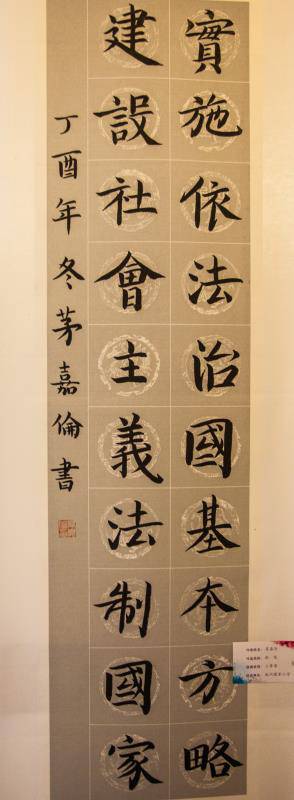 實施依法治國基本方略
建設社會主義法制國家
丁酉年冬茅嘉倫書